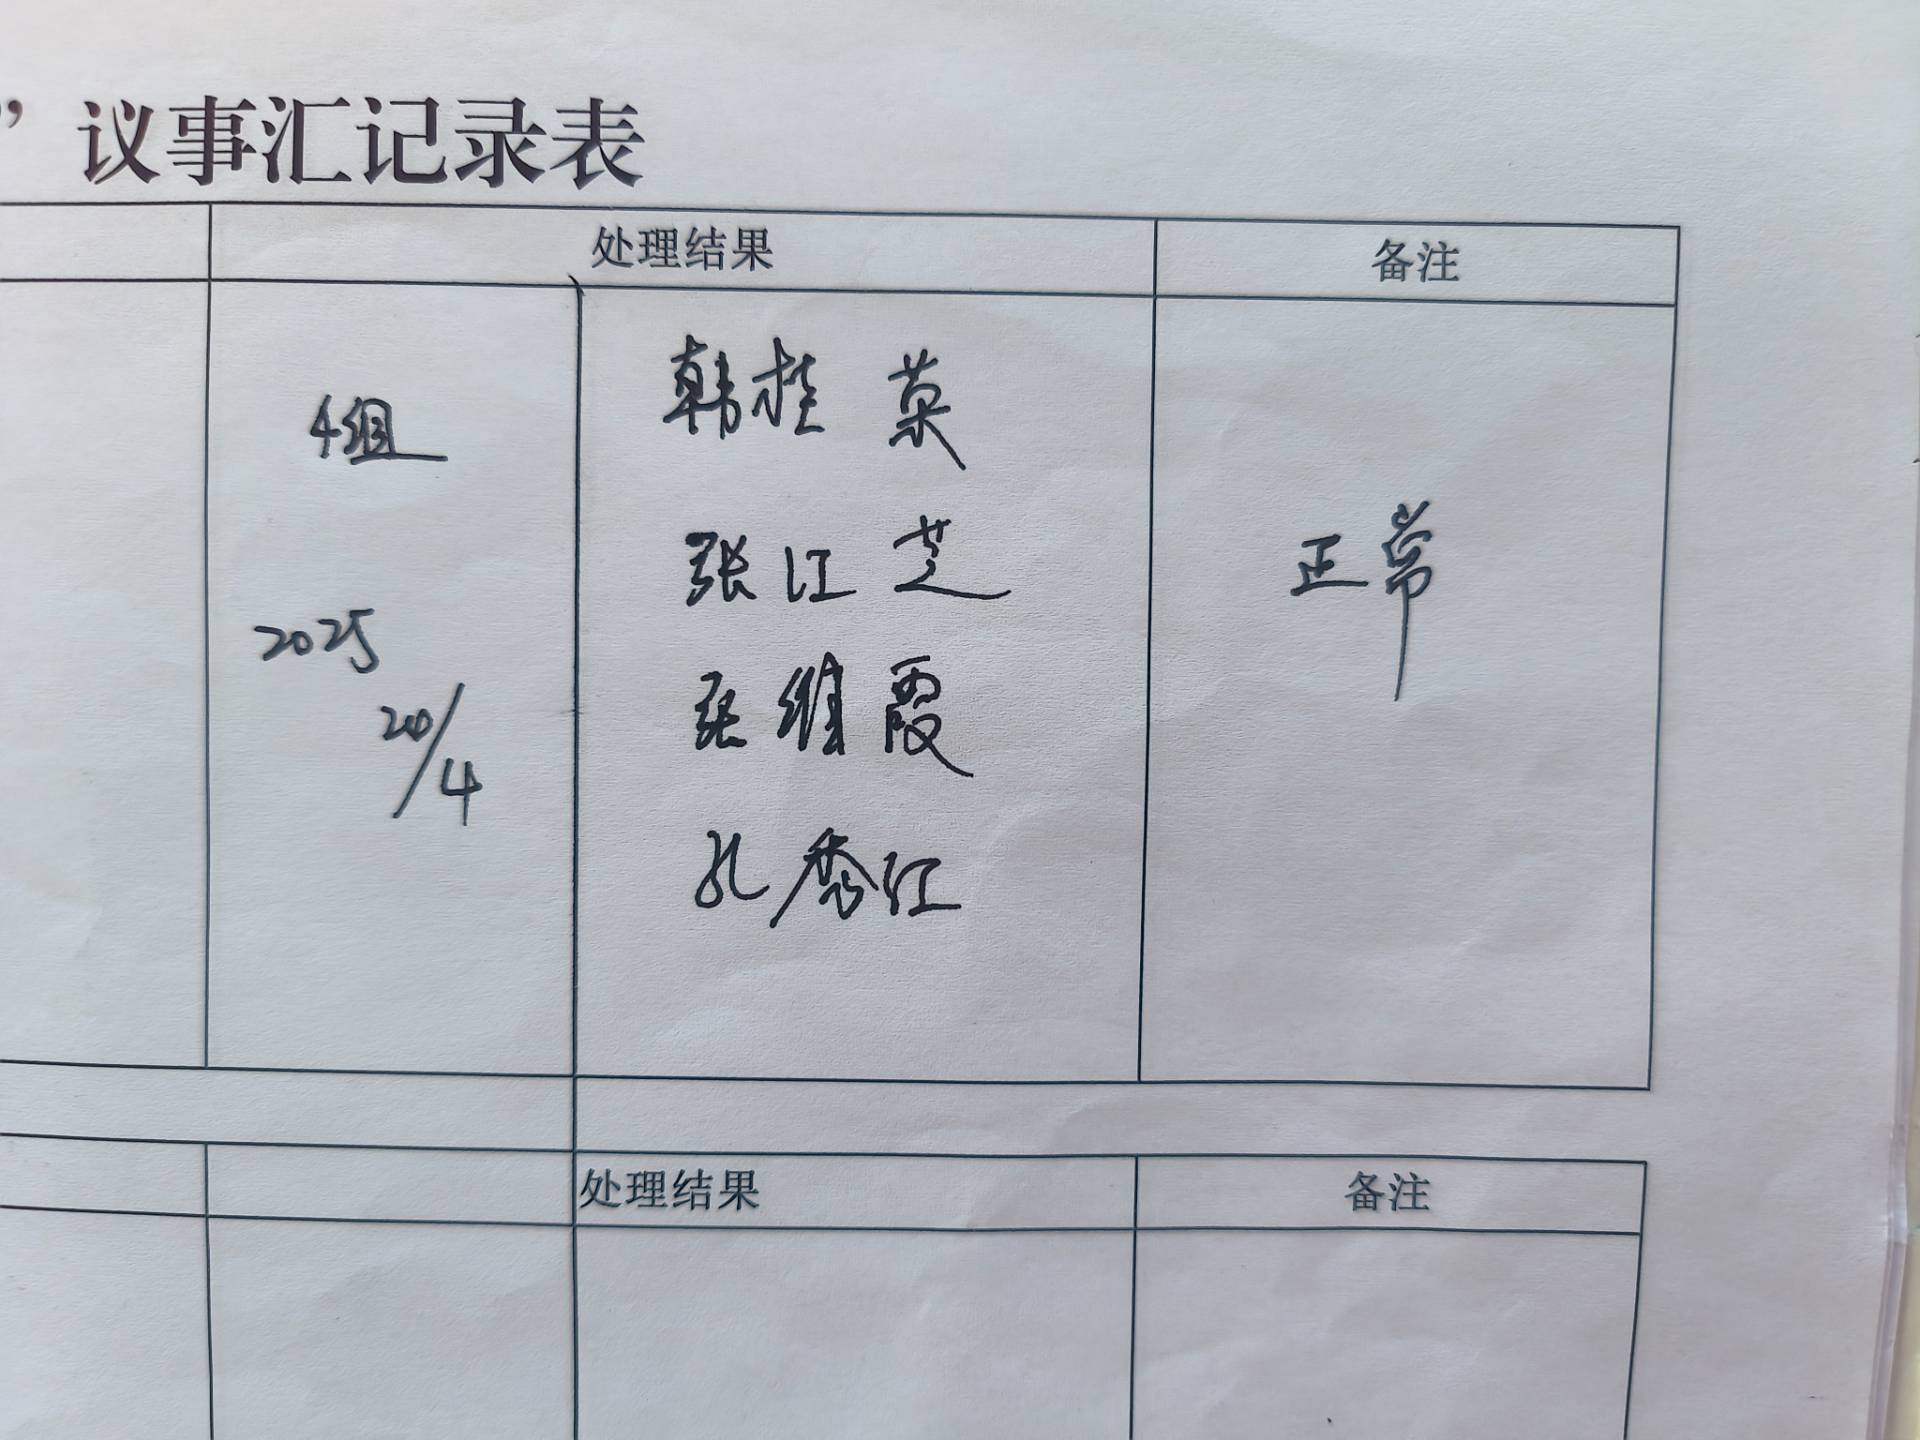 ”议事汇记录表
处理结果 备注
4组
2025
20/4
韩桂英
张江芝
张维霞
孔秀红
正常
处理结果 备注